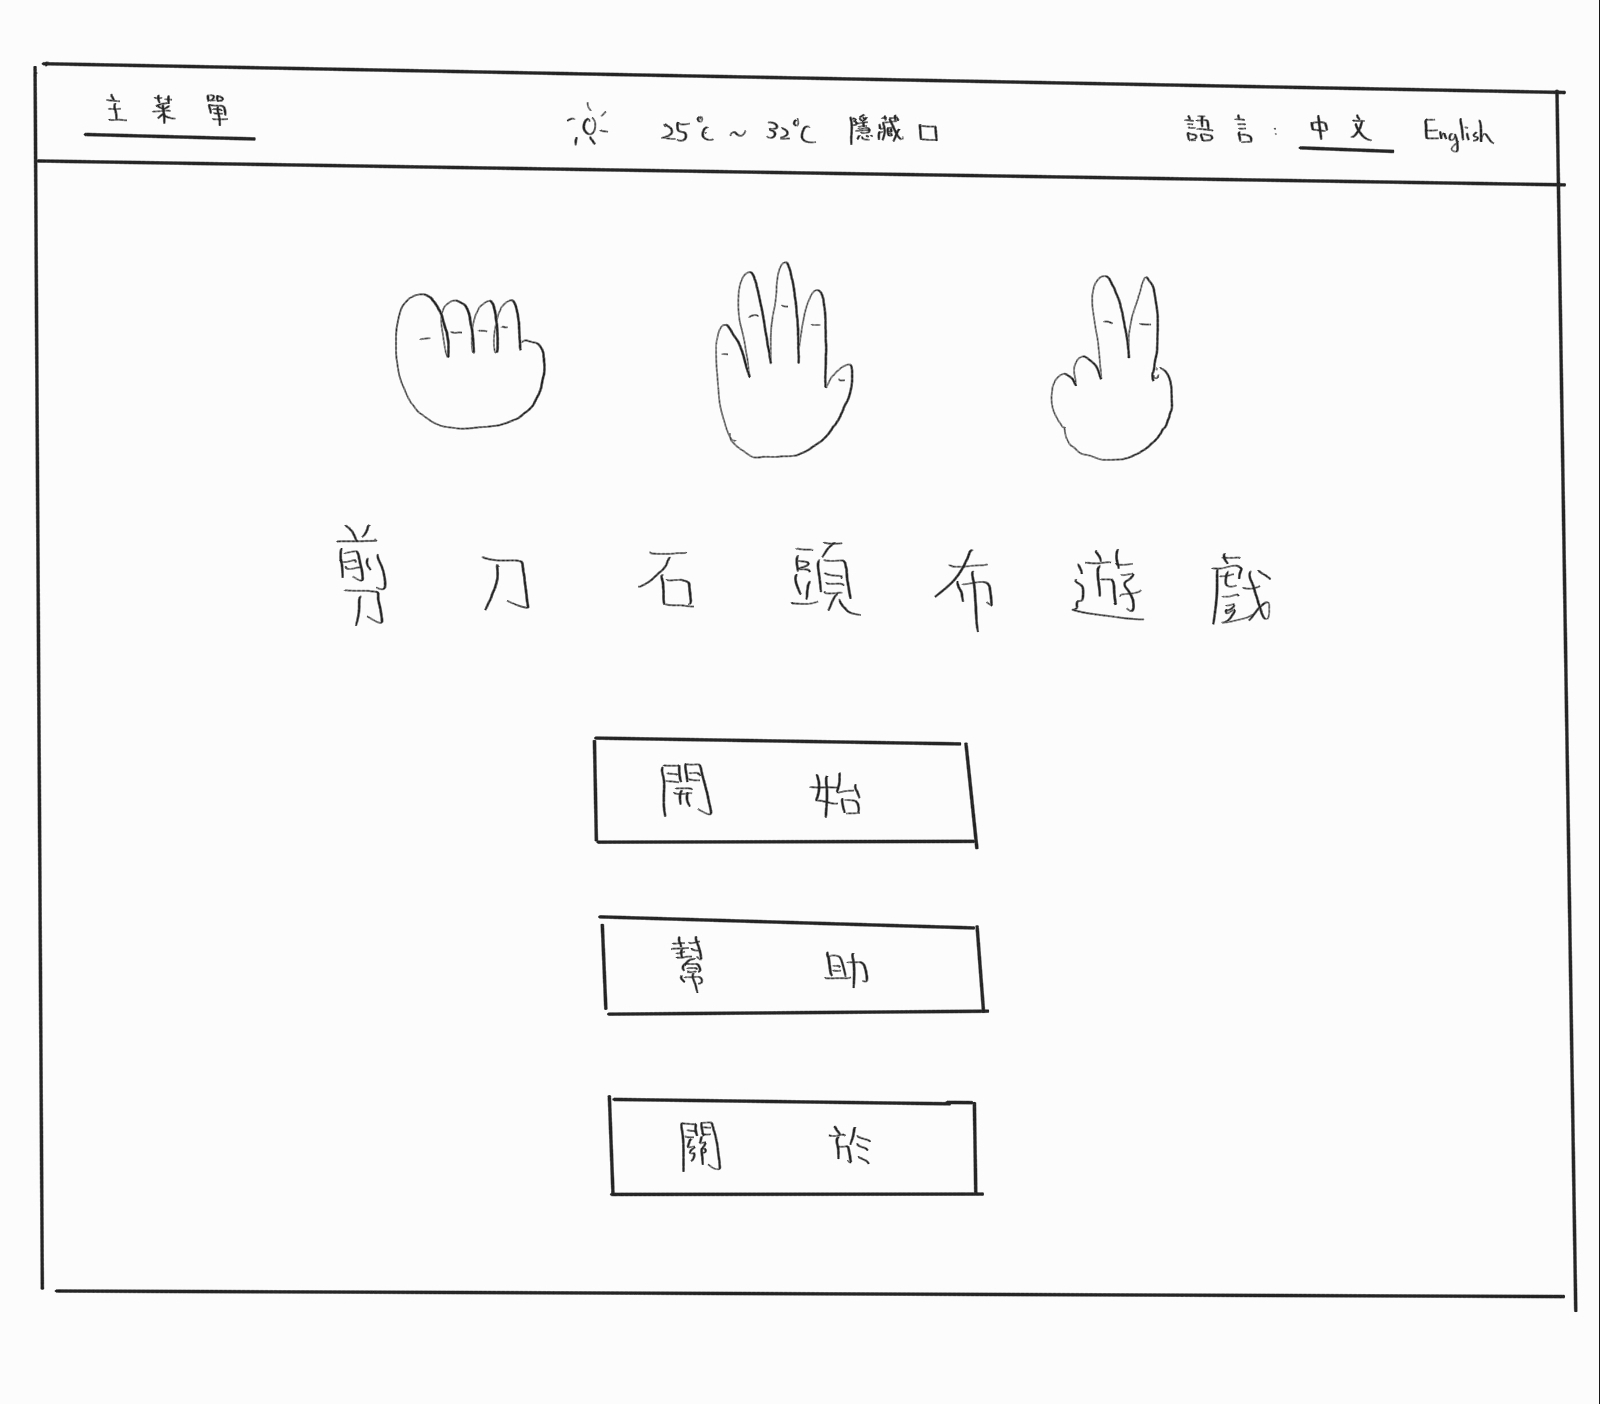 主菜單
25℃ ~ 32℃ 隱藏 □
語言: 中文 English
剪刀石頭布遊戲
開始
幫助
關於